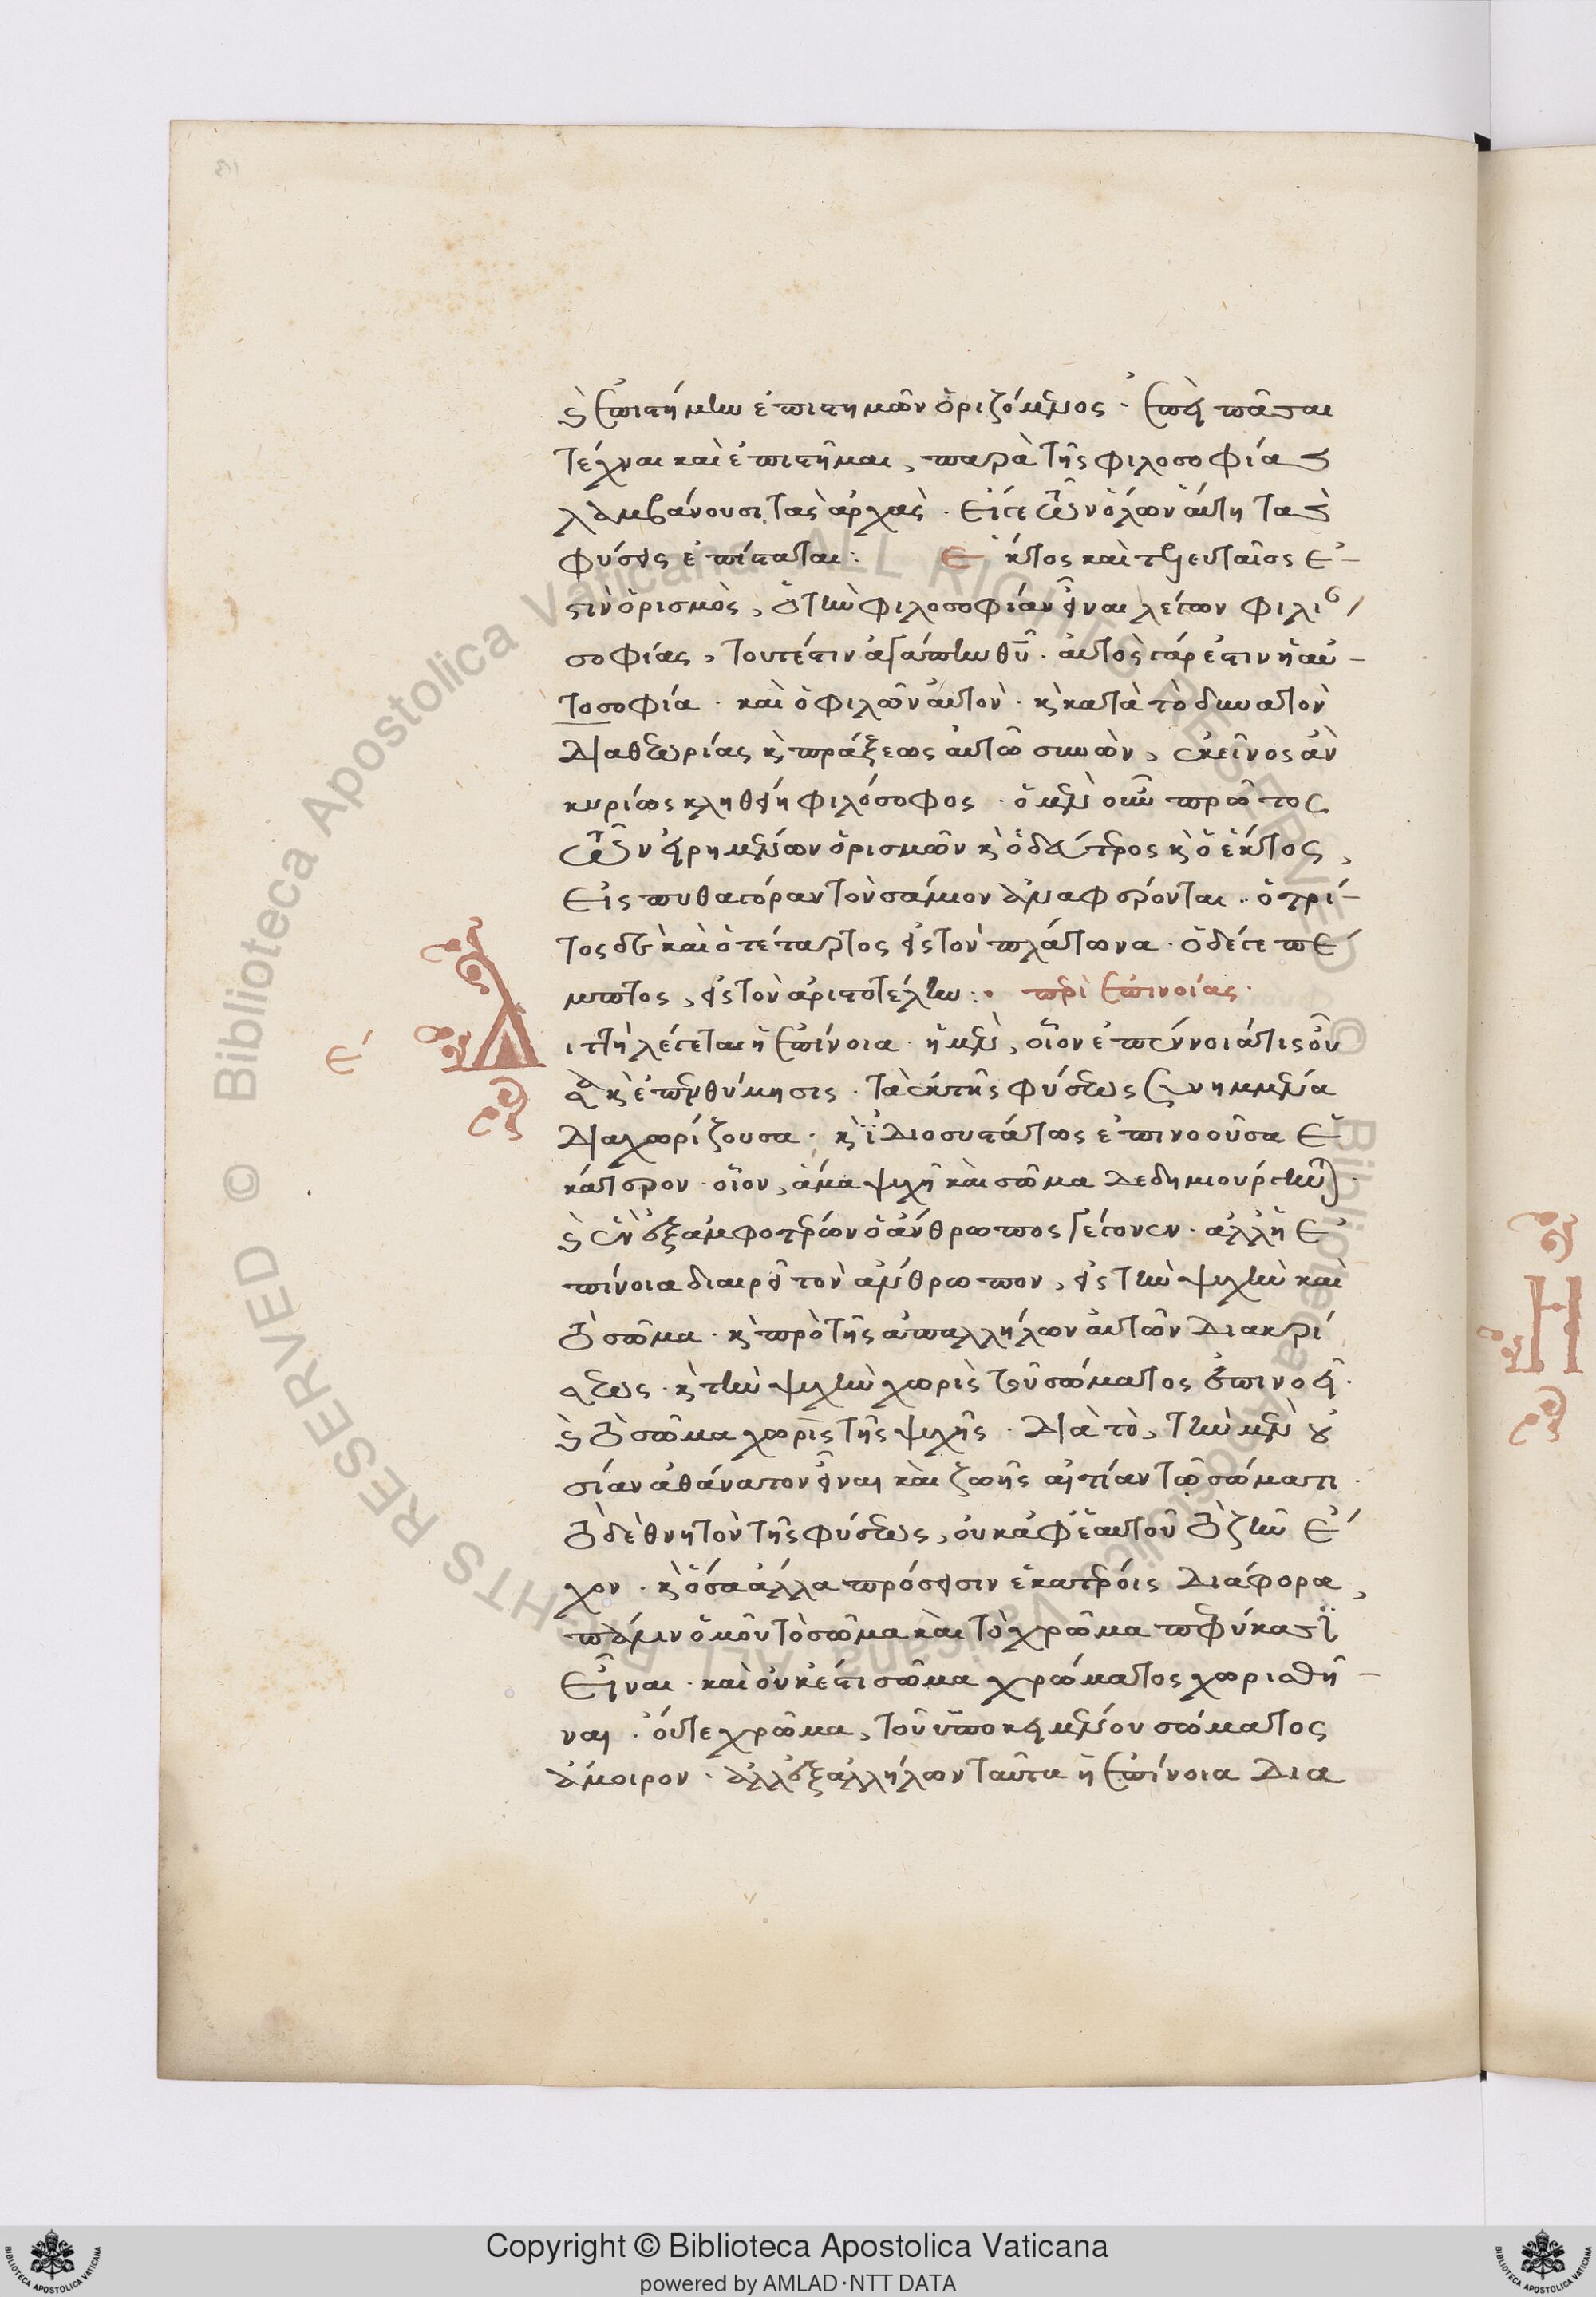 καὶ ἐπιστήμην ἐπιστημῶν ὁριζόμενος · ἐπεὶ πᾶσαι
τέχναι καὶ ἐπιστῆμαι, παρὰ τῆς φιλοσοφίας
λαμβάνουσι τὰς ἀρχὰς · εἴγε τῶν ὅλων αὕτη τὰς
φύσεις ἐπίσταται : ἕκτος καὶ τελευταῖος ἐ-
στὶν ὁρισμὸς, ὁ τὴν φιλοσοφίαν εἶναι λέγων φιλί
σοφίας, τουτέστιν ἀγάπην θῦ · αὐτὸς γάρ ἐστιν ἡ αὐ-
τοσοφία · καὶ ὁ φιλῶν αὐτὸν · καὶ κατὰ τὸ δυνατὸν
διὰ θεωρίας καὶ πράξεως αὐτῷ συνὼν, ἐκεῖνος ἂν
κυρίως κληθείη φιλόσοφος · ὁ μὲν οὖν πρῶτος
τῶν εἰρημένων ὁρισμῶν καὶ ὁ δεύτερος καὶ ὁ ἕκτος,
εἰς πυθαγόραν τὸν σάμιον ἀναφέρονται · ὁ τρί-
τος δὲ καὶ ὁ τέταρτος εἰς τὸν πλάτωνα · ὁ δέ γε πέ
μπτος, εἰς τὸν ἀριστοτέλην : περὶ ἐπινοίας ·
ε Διττὴ λέγεται ἡ ἐπίνοια · ἡ μὲν, οἷον ἐπέννοιά τις οὖ
σα καὶ ἐπενθύμησις · τὰ ἐκ τῆς φύσεως ἑνημμένα
διαχωρίζουσα · καὶ ἰδιοσυστάτως ἐπινοοῦσα ἑ
κάτερον · οἷον, ἅμα ψυχὴ καὶ σῶμα δεδημιούργηται ·
καὶ ἓν ἐξ ἀμφοτέρων ὁ ἄνθρωπος γέγονεν · ἀλλ' ἡ ἐ
πίνοια διαιρεῖ τὸν ἄνθρωπον, εἰς τὴν ψυχὴν καὶ
τὸ σῶμα · καὶ πρὸ τῆς ἀπαλλήλων αὐτῶν διακρί
σεως · καὶ τὴν ψυχὴν χωρὶς τοῦ σώματος ἐπινοεῖ ·
καὶ τὸ σῶμα χωρὶς τῆς ψυχῆς · διὰ τὸ, τὴν μὲν οὐ
σίαν ἀθάνατον εἶναι καὶ ζωῆς αἰτίαν τῷ σώματι ·
τὸ δὲ θνητὸν τῆς φύσεως, οὐκ ἀφ' ἑαυτοῦ τὸ ζῆν ἔ
χον · καὶ ὅσα ἄλλα πρόσεισιν ἑκατέροις διάφορα,
πάλιν ὁμοῦ τὸ σῶμα καὶ τὸ χρῶμα πεφύκασι
εἶναι · καὶ οὐκ ἔστι σῶμα χρώματος χωρισθῆ-
ναι · οὔτε χρῶμα, τοῦ ὑποκειμένου σώματος
ἄμοιρον · ἀλλ' ἐξ ἀλλήλων ταῦτα ἡ ἐπίνοια δια
Copyright © Biblioteca Apostolica Vaticana
powered by AMLAD·NTT DATA